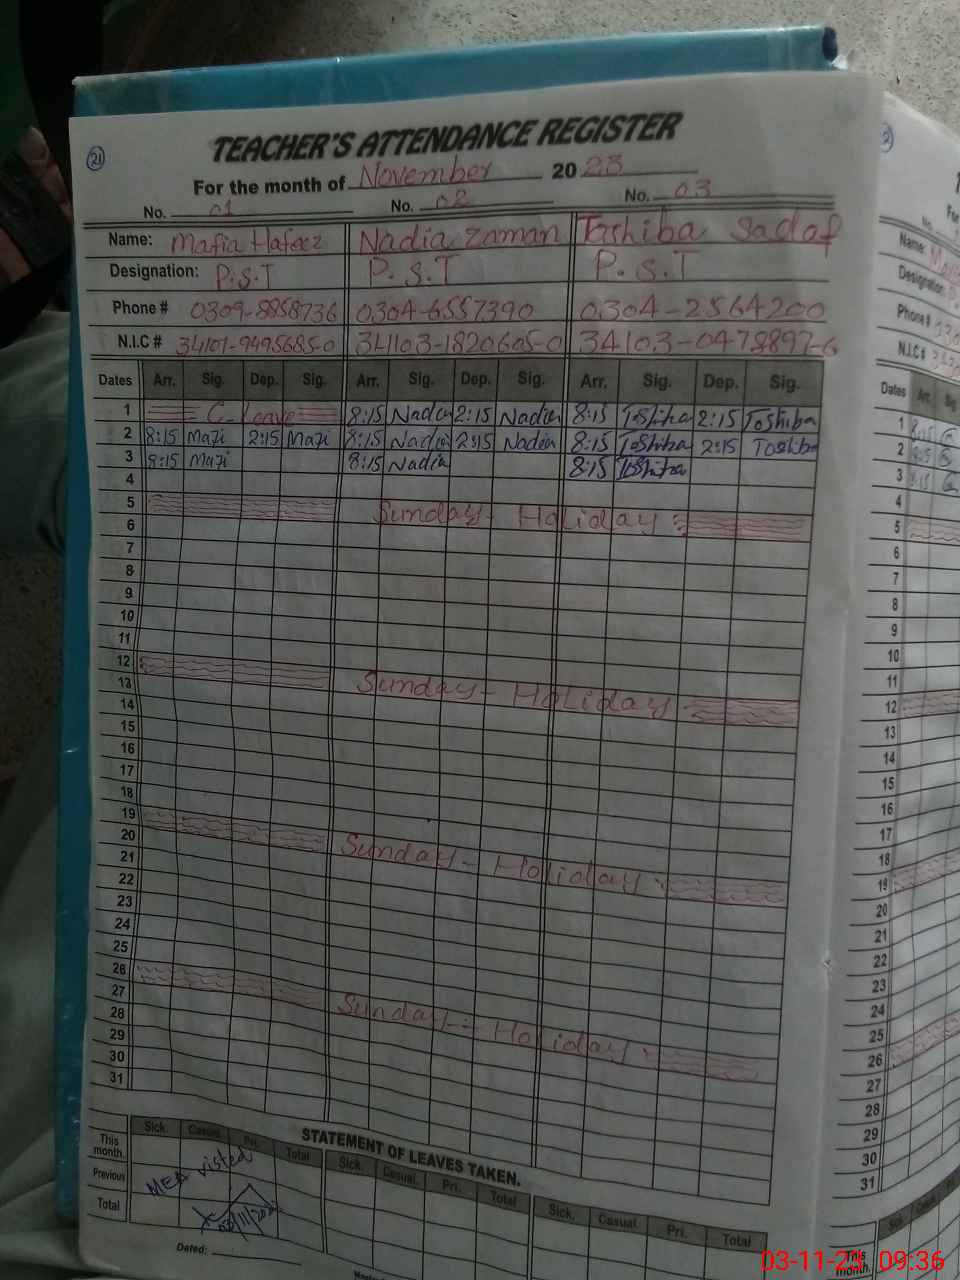 21
TEACHER'S ATTENDANCE REGISTER
For the month of November 20 23
No. 01 No. 02 No. 03
Name: Mafia Hafeez Nadia Zaman Toshiba Sadaf
Designation: P.S.T P.S.T P.S.T
Phone # 0309-8858736 0304-6557390 0304-2564200
N.I.C # 34101-9495685-0 34103-1820605-0 34103-0478897-6
Dates Arr. Sig. Dep. Sig. Arr. Sig. Dep. Sig. Arr. Sig. Dep. Sig.
1 C-Leave 8:15 Nadia 2:15 Nadia 8:15 Toshiba 2:15 Toshiba
2 8:15 Mafi 2:15 Mafi 8:15 Nadia 2:15 Nadia 8:15 Toshiba 2:15 Toshiba
3 8:15 Mafi 8:15 Nadia 8:15 Toshiba
4
5 Sunday - Holiday
6
7
8
9
10
11
12 Sunday - Holiday
13
14
15
16
17
18
19 Sunday - Holiday
20
21
22
23
24
25
26 Sunday - Holiday
27
28
29
30
31
STATEMENT OF LEAVES TAKEN.
Sick. Casual. Pri. Total Sick. Casual. Pri. Total Sick. Casual. Pri. Total
This month.
Previous
Total
MEA visted
03/11/20
Dated:
Name:
Designation
Phone #
N.I.C #
Dates Arr. Sig
1 8:15
2 8:15
3 8:15
4
5
6
7
8
9
10
11
12
13
14
15
16
17
18
19
20
21
22
23
24
25
26
27
28
29
30
31
Sick Casual
This month.
03-11-23 09:36